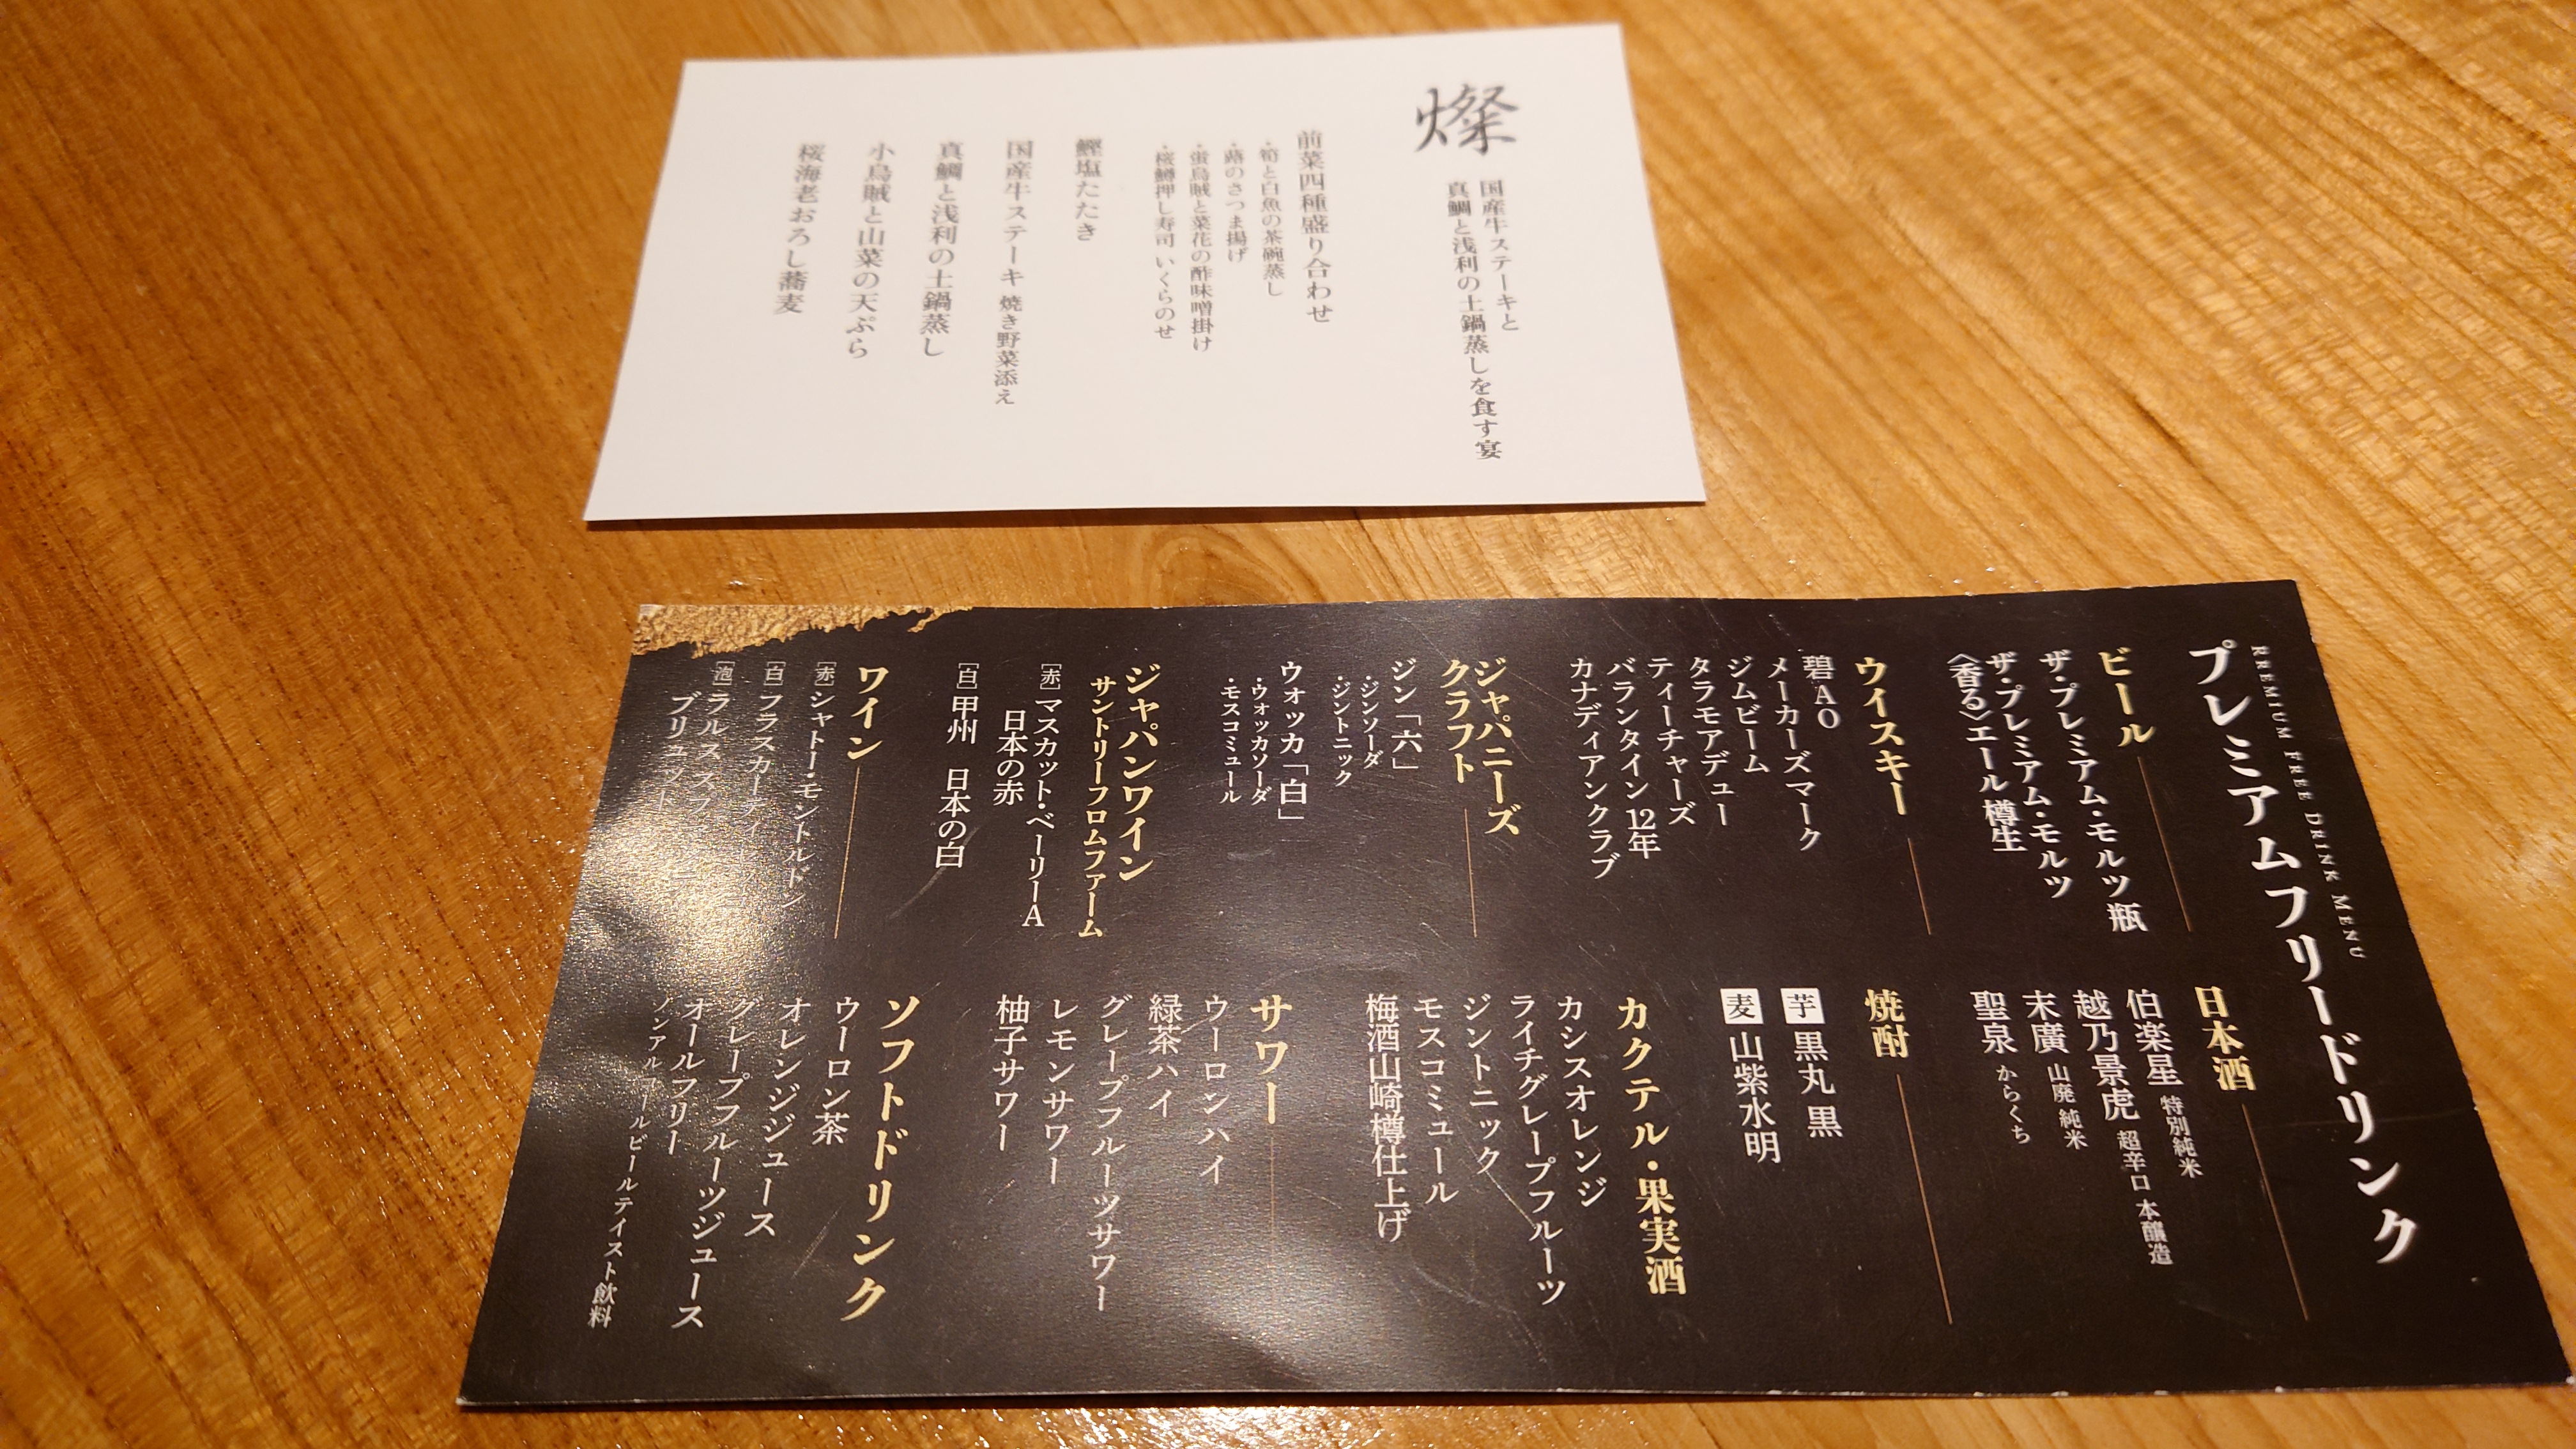 燦
国産牛ステーキと
真鯛と浅利の土鍋蒸しを食す宴
前菜四種盛り合わせ
・筍と白魚の茶碗蒸し
・蕗のさつま揚げ
・蛍烏賊と菜花の酢味噌掛け
・桜鱒押し寿司 いくらのせ
鰹塩たたき
国産牛ステーキ 焼き野菜添え
真鯛と浅利の土鍋蒸し
小烏賊と山菜の天ぷら
桜海老おろし蕎麦
PREMIUM FREE DRINK MENU
プレミアムフリードリンク
ビール
ザ・プレミアム・モルツ 瓶
ザ・プレミアム・モルツ
〈香る〉エール 樽生
ウイスキー
碧 AO
メーカーズマーク
ジムビーム
タラモアデュー
ティーチャーズ
バランタイン 12年
カナディアンクラブ
ジャパニーズ
クラフト
ジン「六」
・ジンソーダ
・ジントニック
ウォッカ「白」
・ウォッカソーダ
・モスコミュール
ジャパンワイン
サントリーフロムファーム
[赤] マスカット・ベーリーA
日本の赤
[白] 甲州 日本の白
ワイン
[赤] シャトー・モントルド
[白] フラスカーティ
[泡] ラルス スプ
ブリュット
日本酒
伯楽星 特別純米
越乃景虎 超辛口 本醸造
末廣 山廃 純米
聖泉 からくち
焼酎
芋 黒丸 黒
麦 山紫水明
カクテル・果実酒
カシスオレンジ
ライチグレープフルーツ
ジントニック
モスコミュール
梅酒山崎樽仕上げ
サワー
ウーロンハイ
緑茶ハイ
グレープフルーツサワー
レモンサワー
柚子サワー
ソフトドリンク
ウーロン茶
オレンジジュース
グレープフルーツジュース
オールフリー
ノンアルコールビールテイスト飲料